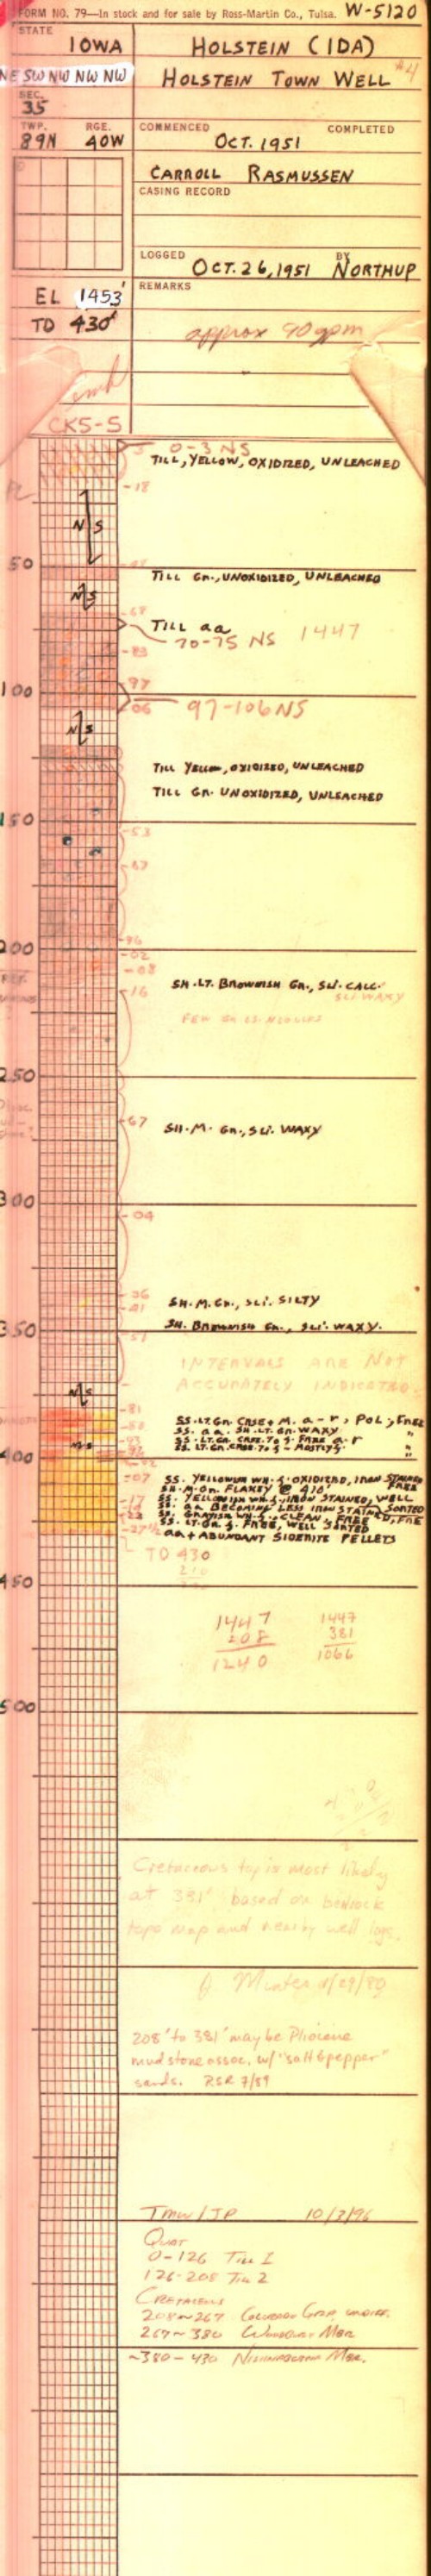 FORM NO. 79—In stock and for sale by Ross-Martin Co., Tulsa. W-5120
STATE
IOWA
HOLSTEIN (IDA)
NE SW NW NW NW
HOLSTEIN TOWN WELL #4
SEC.
35
TWP. RGE. COMMENCED COMPLETED
89N 40W OCT. 1951
CARROLL RASMUSSEN
CASING RECORD
LOGGED BY
OCT. 26, 1951 NORTHUP
EL 1453' REMARKS
TD 430' approx 90 gpm
CK5-S
0-3 NS
TILL, YELLOW, OXIDIZED, UNLEACHED
-18
N S
50
TILL GR., UNOXIDIZED, UNLEACHED
NS
-68
TILL aa
70-75 NS 1447
-83
-97
100
-06 97-106 NS
NS
TILL YELLOW, OXIDIZED, UNLEACHED
TILL GR. UNOXIDIZED, UNLEACHED
150
-53
-67
-96
200
-02
-08
-16 SH. LT. BROWNISH GR., SLI. CALC.
SLI WAXY
FEW
250
-67 SH. M. GR., SLI. WAXY
300
-04
-36
-41 SH. M. GR., SLI. SILTY
350 SH. BROWNISH GR., SLI. WAXY.
-51
INTERVALS ARE NOT
ACCURATELY INDICATED
NS
-81
SS. LT. GR. CRSE + M. a-r, POL, FREE
SS. aa, SH. LT. GR. WAXY "
NS
SS. LT. GR. CRSE. TO f. FREE a-r
SS. LT. GR. CRSE. TO f - MOSTLY f. "
400
-07 SS. YELLOWISH WH. f. OXIDIZED, IRON STAINED
SH. M. GR. FLAKEY @ 410' FREE
-17 SS. YELLOWISH WH. f., IRON STAINED, WELL
SS. aa BECOMING LESS IRON STAINED, SORTED
-22 SS. GRAYISH WH. f., CLEAN, FREE
SS. LT. GR. f. FREE, WELL SORTED
-27½ aa + ABUNDANT SIDERITE PELLETS
TD 430
450
1447 1447
208 381
1240 1066
500
Cretaceous top is most likely
at 381' based on bedrock
topo map and nearby well logs.
Munter
208' to 381' may be Pliocene
mudstone assoc. w/ "salt & pepper"
sands. RSR 7/89
TMW / JP 10/3/96
QUAT
0-126 TILL 1
126-208 TILL 2
CRETACEOUS
208~267 COLORADO GROUP, UNDIFF.
267~380 WOODBURY MBR
~380-430 NISHNABOTNA MBR.